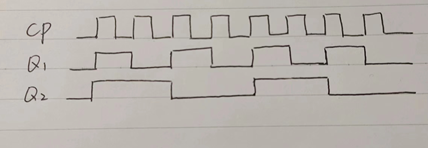 CP
Q₁
Q₂